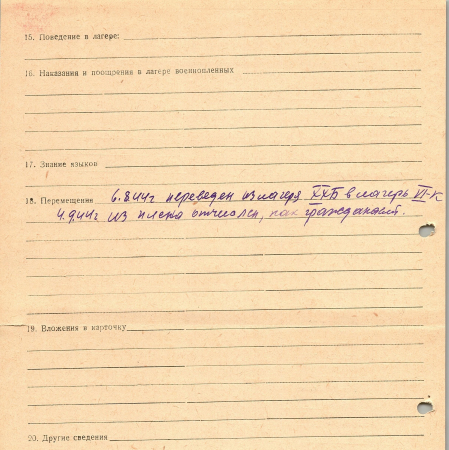 15. Поведение в лагере:
16. Наказания и поощрения в лагере военнопленных
17. Знание языков
18. Перемещения 6.8.44г переведен из лагеря XXБ в лагерь VI-К
4.9.44г из плена отчислен, как гражданский.
19. Вложения в карточку
20. Другие сведения